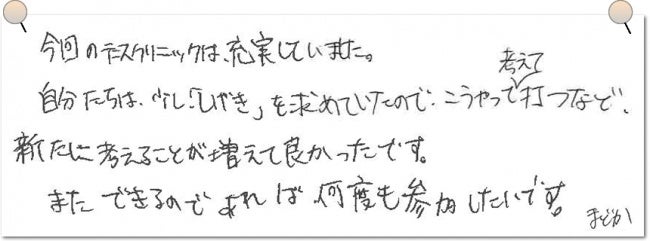 今回のテニスクリニックは、充実していました。
自分たちは、少し「しげき」を求めていたので、こうやって考えて打つなど、
新たに考えることが増えて良かったです。
またできるのであれば何度も参加したいです。
まどか